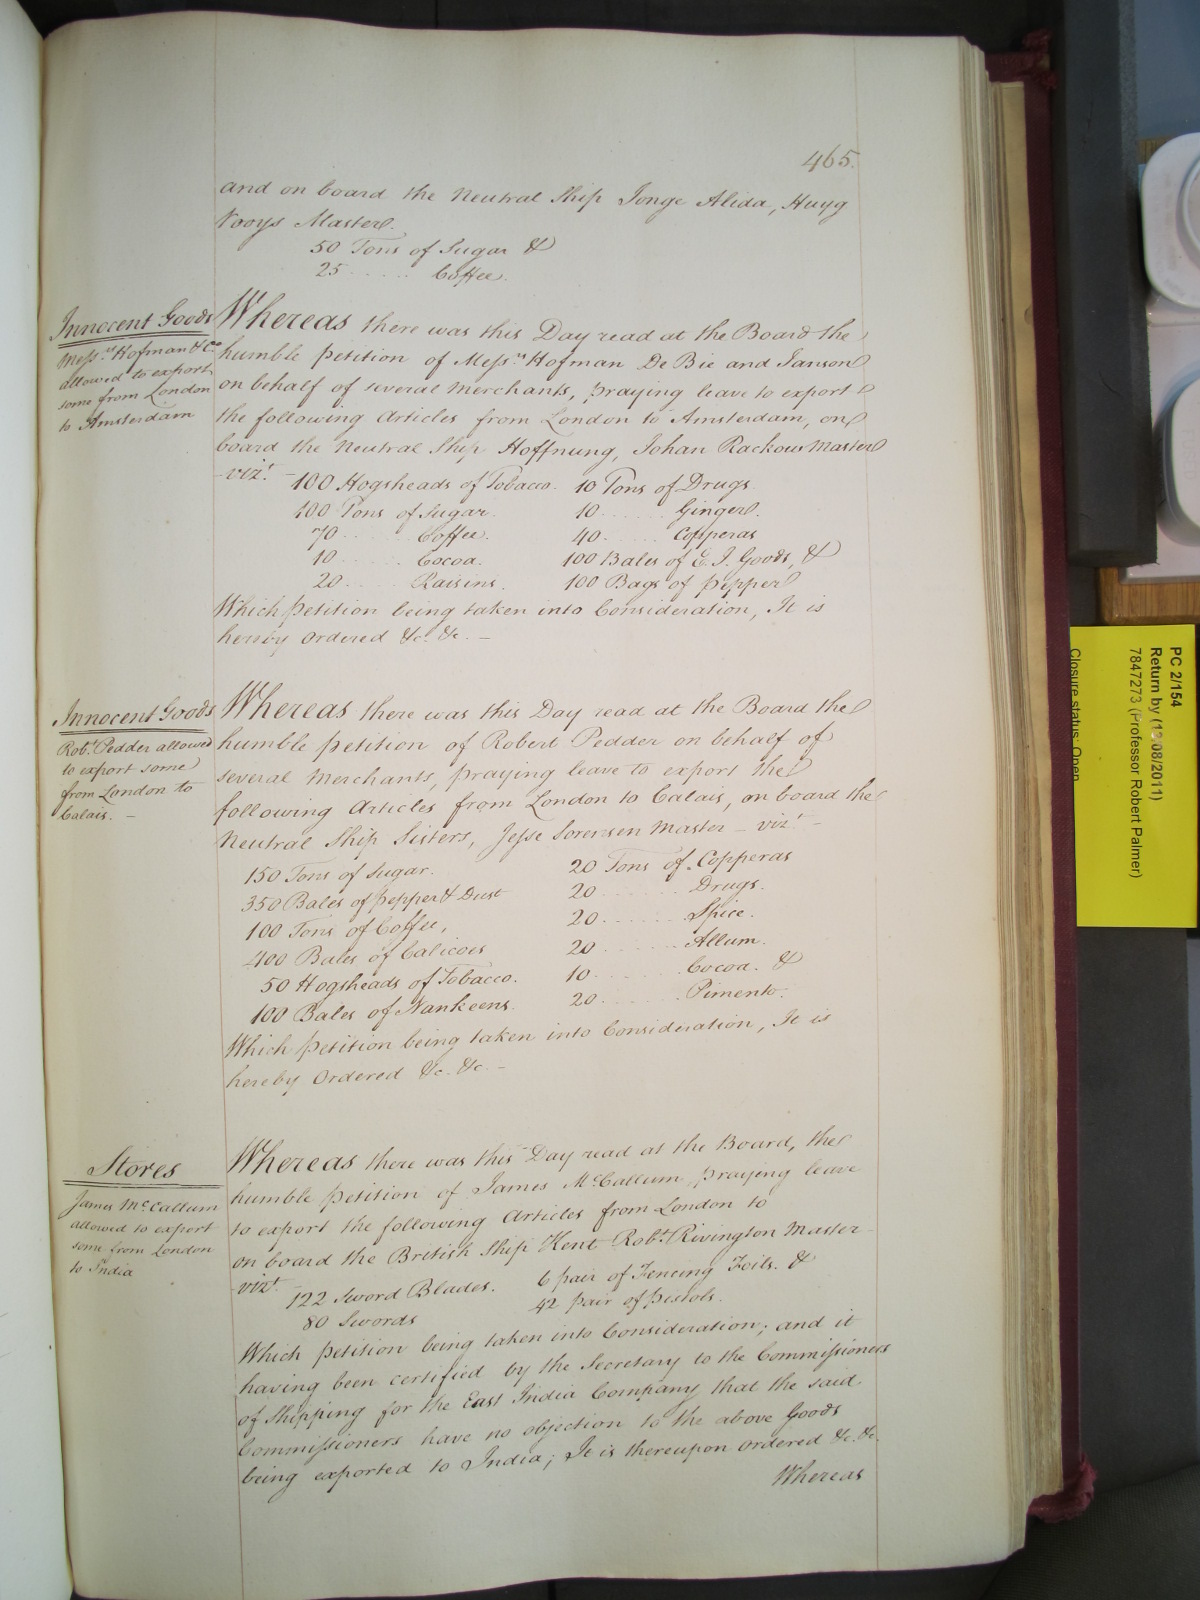 465.
and on board the Neutral Ship Jonge Alida, Huyg
Vooys Master.
50 Tons of Sugar &
25 ...... Coffee.
Innocent Goods
Mess.rs Hofman & Co
allowed to export
some from London
to Amsterdam
Whereas there was this Day read at the Board the
humble petition of Mess.rs Hofman De Bie and Janson
on behalf of several Merchants, praying leave to export
the following Articles from London to Amsterdam, on
board the Neutral Ship Hoffnung, Johan Rackow Master
- vizt. - 100 Hogsheads of Tobacco. 10 Tons of Drugs
100 Tons of Sugar. 10 ...... Ginger.
70 ...... Coffee. 40 ...... Copperas
10 ...... Cocoa. 100 Bales of E. I. Goods, &
20 ...... Raisins. 100 Bags of pepper
Which petition being taken into Consideration, It is
hereby Ordered &c. &c. —
Innocent Goods
Robt. Pedder allowed
to export some
from London to
Calais. —
Whereas there was this Day read at the Board the
humble petition of Robert Pedder on behalf of
several Merchants, praying leave to export the
following Articles from London to Calais, on board the
Neutral Ship Sisters, Jesse Sorensen Master - vizt. -
150 Tons of Sugar. 20 Tons of Copperas
350 Bales of pepper & Dust 20 ...... Drugs.
100 Tons of Coffee, 20 ...... Spice.
400 Bales of Calicoes 20 ...... Allum.
50 Hogsheads of Tobacco. 10 ...... Cocoa. &
100 Bales of Nankeens. 20 ...... Pimento.
Which petition being taken into Consideration, It is
hereby Ordered &c. &c. -
Stores
James McCallum
allowed to export
some from London
to India
Whereas there was this Day read at the Board, the
humble petition of James McCallum, praying leave
to export the following Articles from London to
on board the British Ship Kent Robt. Rivington Master -
- vizt. - 122 Sword Blades. 6 pair of Fencing Foils. &
80 Swords 42 pair of pistols.
Which petition being taken into Consideration; and it
having been certified by the Secretary to the Commissioners
of Shipping for the East India Company that the said
Commissioners have no objection to the above Goods
being exported to India; It is thereupon ordered &c. &c.
Whereas
PC 2/154
Return by (12/08/2011)
7847273 (Professor Robert Palmer)
Closure status: Open